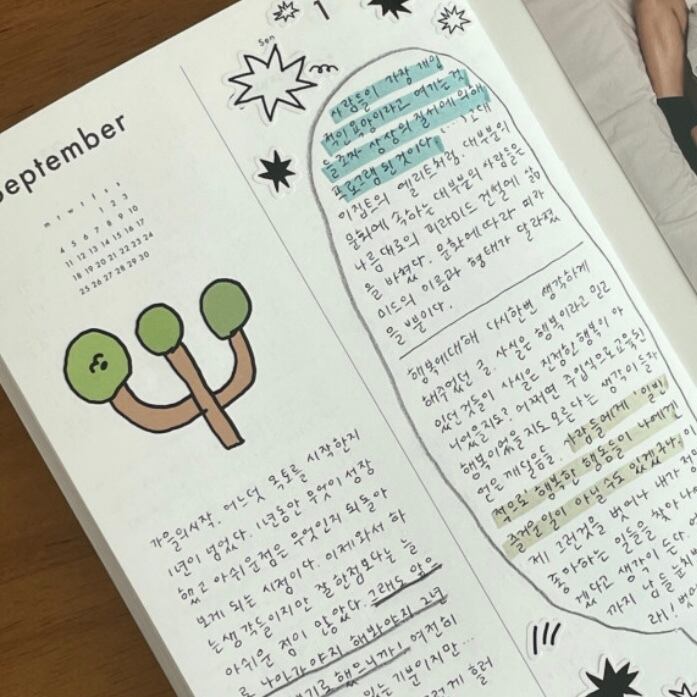 September
m t w t f s s
1 2 3
4 5 6 7 8 9 10
11 12 13 14 15 16 17
18 19 20 21 22 23 24
25 26 27 28 29 30
가을의시작. 어느덧 독토를 시작한지
1년이 넘었다. 1년동안 무엇이 성장
했고 아쉬운점은 무엇인지 되돌아
보게 되는 시점이다. 이제와서 하
는생각들이지만 잘한점보다는 늘
아쉬운 점이 많았다. 그래도 앞으
로 나아가야지 해봐야지 그녀
기로 했으니까! 여전히
있는 기분이지만...
렇게 흘러
1
Son
사람들이 가장 개인
적인 욕망이라고 여기는것
들조차 상상의 질서에 의해
프로그램 된 것이다.
이집트의 엘리트처럼. 대부분의
문화에 속하는 대부분의 사람들은
나름대로의 피라미드 건설에 삶
을 바쳤다. 문화에따라 피라
미드의 이름과 형태가 달라졌
을 뿐이다.
행복에대해 다시한번 생각하게
해주었던 글. 사실은 행복이라고 믿고
있던 것들이 사실은 진정한 행복이 아
니었을지도? 어쩌면 주입식으로교육된
행복이었을지도 모른다는 생각이들자
얻은 깨달음은. 사람들에게 일반
적으로 행복한 행동들이 나에겐
즐거운일이 아닐수도 있겠구나.
제 그런것을 벗어나 내가
좋아하는 일들을 찾아나
겠다고 생각이 든다.
까지 남들눈치
라!